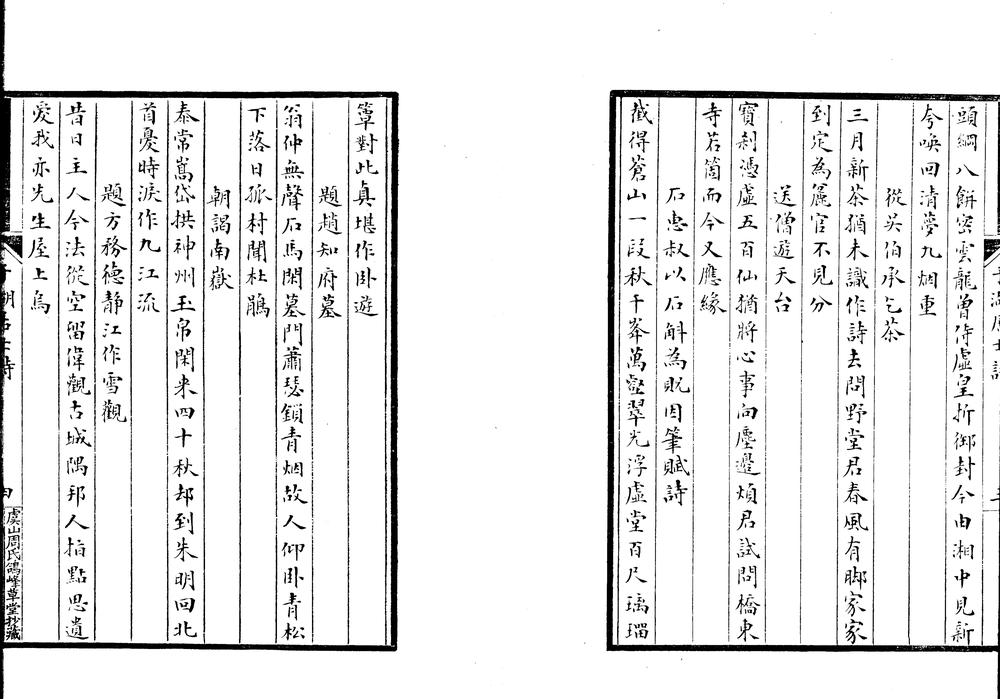 頭綱八餅密雲龍曾侍虛皇折御封今日湘中見新
夸喚回清夢九烟重
從吴伯承乞茶
三月新茶猶未識作詩去問野堂君春風有脚家家
到定為麄官不見分
送僧遊天台
寳刹憑虛五百仙猶將心事向塵邉煩君試問橋東
寺若箇而今又應緣
石惠叔以石斛為貺因筆賦詩
截得蒼山一段秋千峯萬壑翠光浮虛堂百尺璃瑠
簟對此真堪作卧遊
題趙知府墓
翁仲無聲石馬閑墓門蕭瑟鎖青烟故人仰卧青松
下落日孤村聞杜鵑
朝謁南嶽
秦常嵩岱拱神州玉帛閑来四十秋却到朱明回北
首憂時淚作九江流
題方務德静江作雪觀
昔日主人今法從空留偉觀古城隅邦人指點思遺
愛我亦先生屋上烏
四
虞山周氏鴿峰草堂抄藏